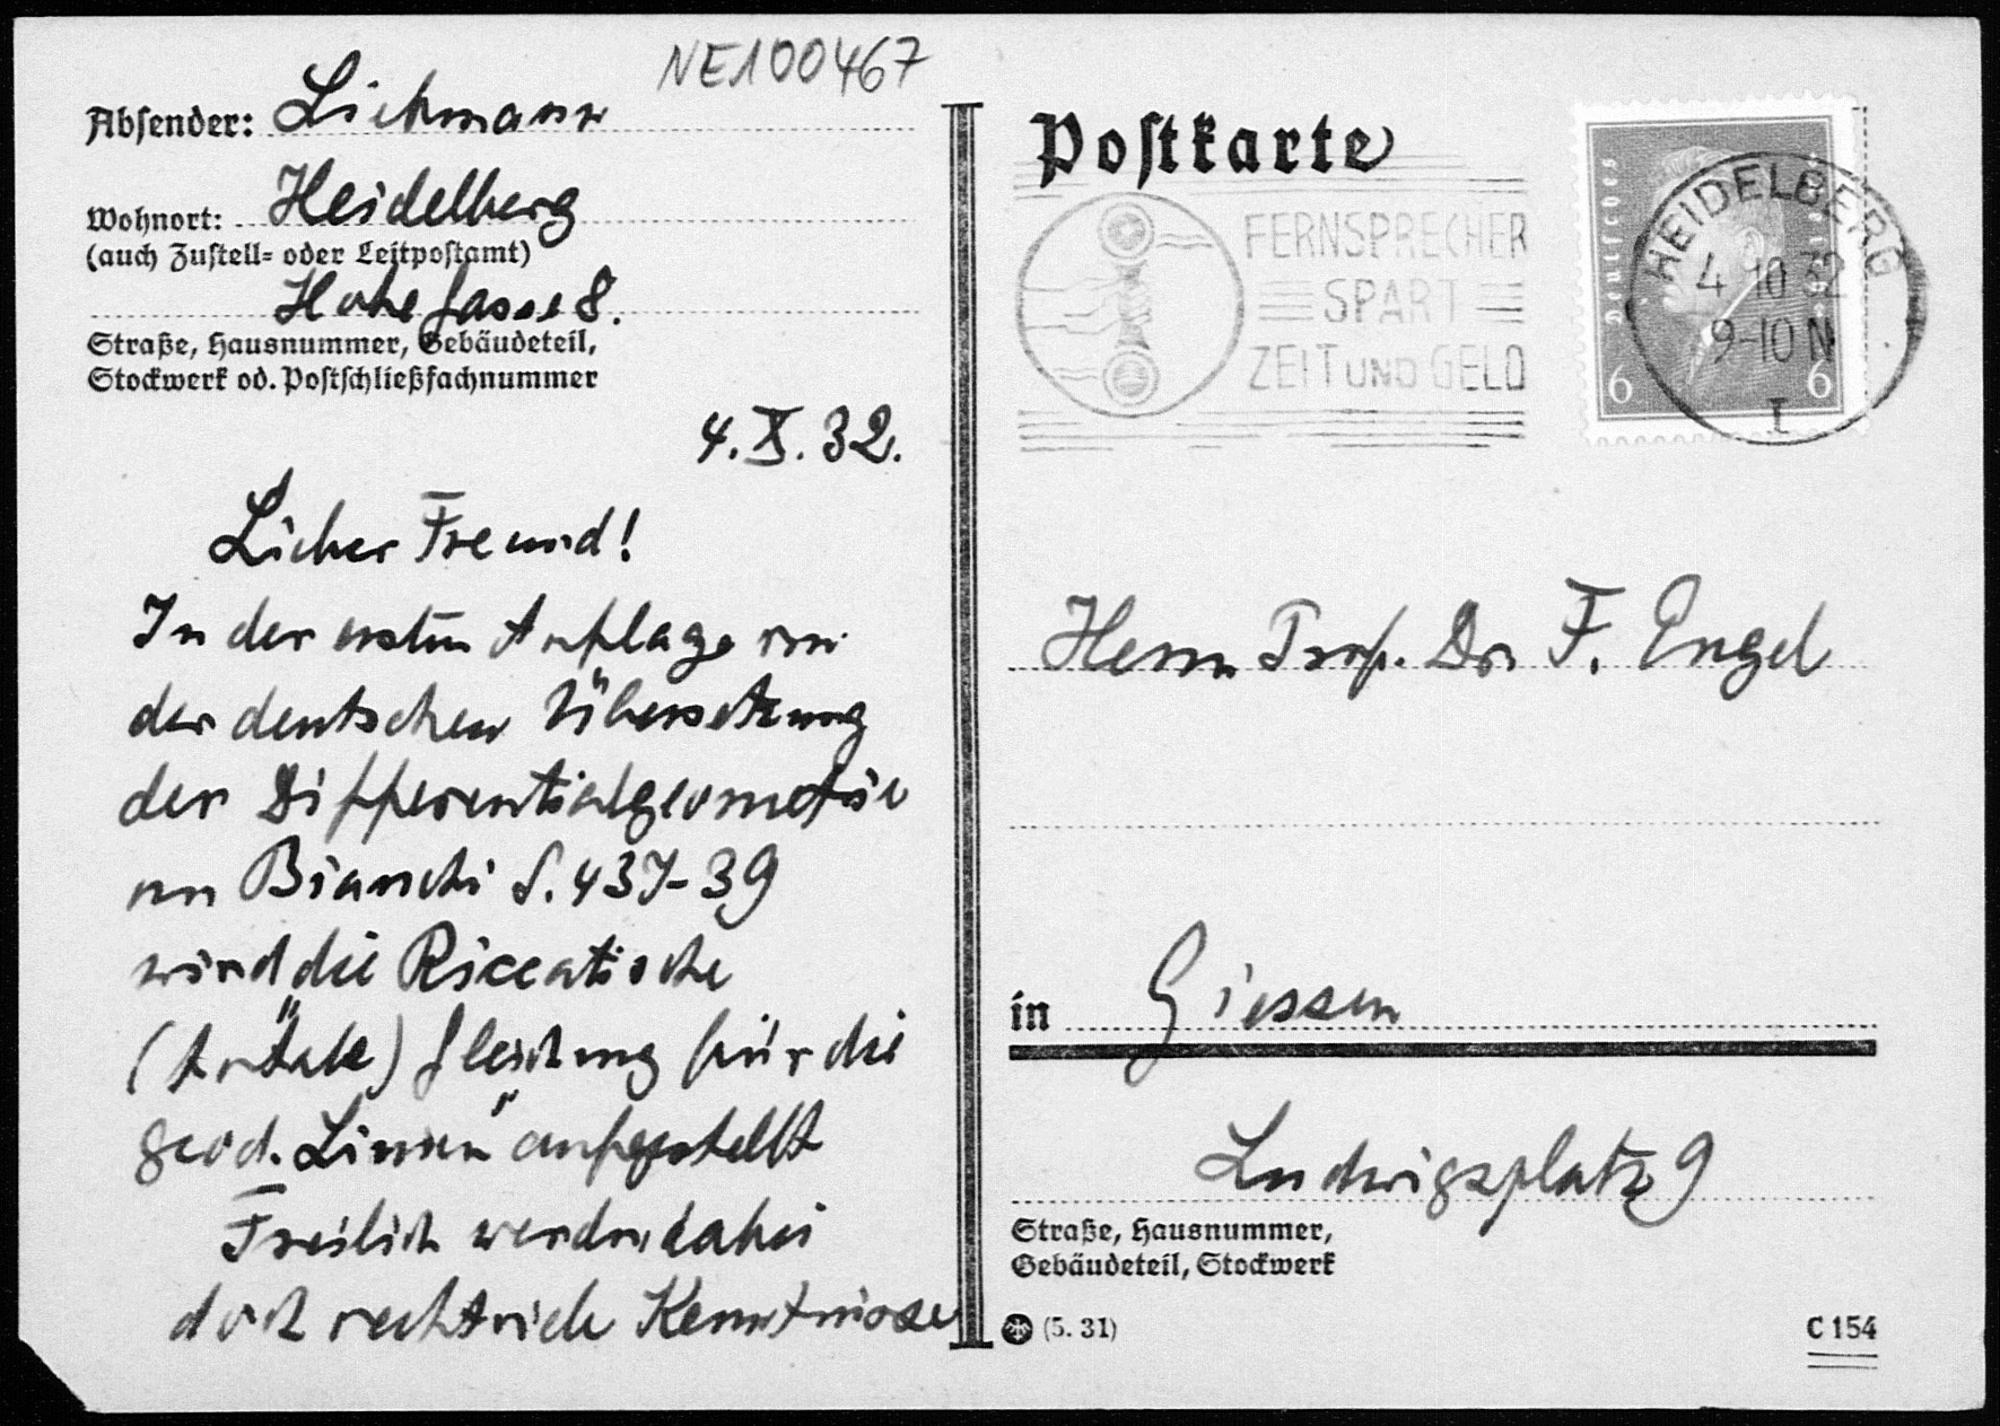 NE100467
Absender: Liebmann
Wohnort: Heidelberg
(auch Zustell- oder Leitpostamt)
Hohe Gasse 8.
Straße, Hausnummer, Gebäudeteil,
Stockwerk od. Postschließfachnummer
4. X. 32.
Lieber Freund!
In der ersten Auflage von
der deutschen Übersetzung
der Differentialgeometrie
von Bianchi S. 437-39
wird die Riccatische
Gleichung für die
geod. Linien aufgestellt
Freilich werden dabei
doch recht viele Kenntnisse
Postkarte
FERNSPRECHER
SPART
ZEIT UND GELD
Deutsches Reich
HEIDELBERG
4 10 32
9-10 N
6 6
I
Herrn Prof. Dr. F. Engel
in Giessen
Ludwigsplatz 9
Straße, Hausnummer,
Gebäudeteil, Stockwerk
(5. 31)
C 154